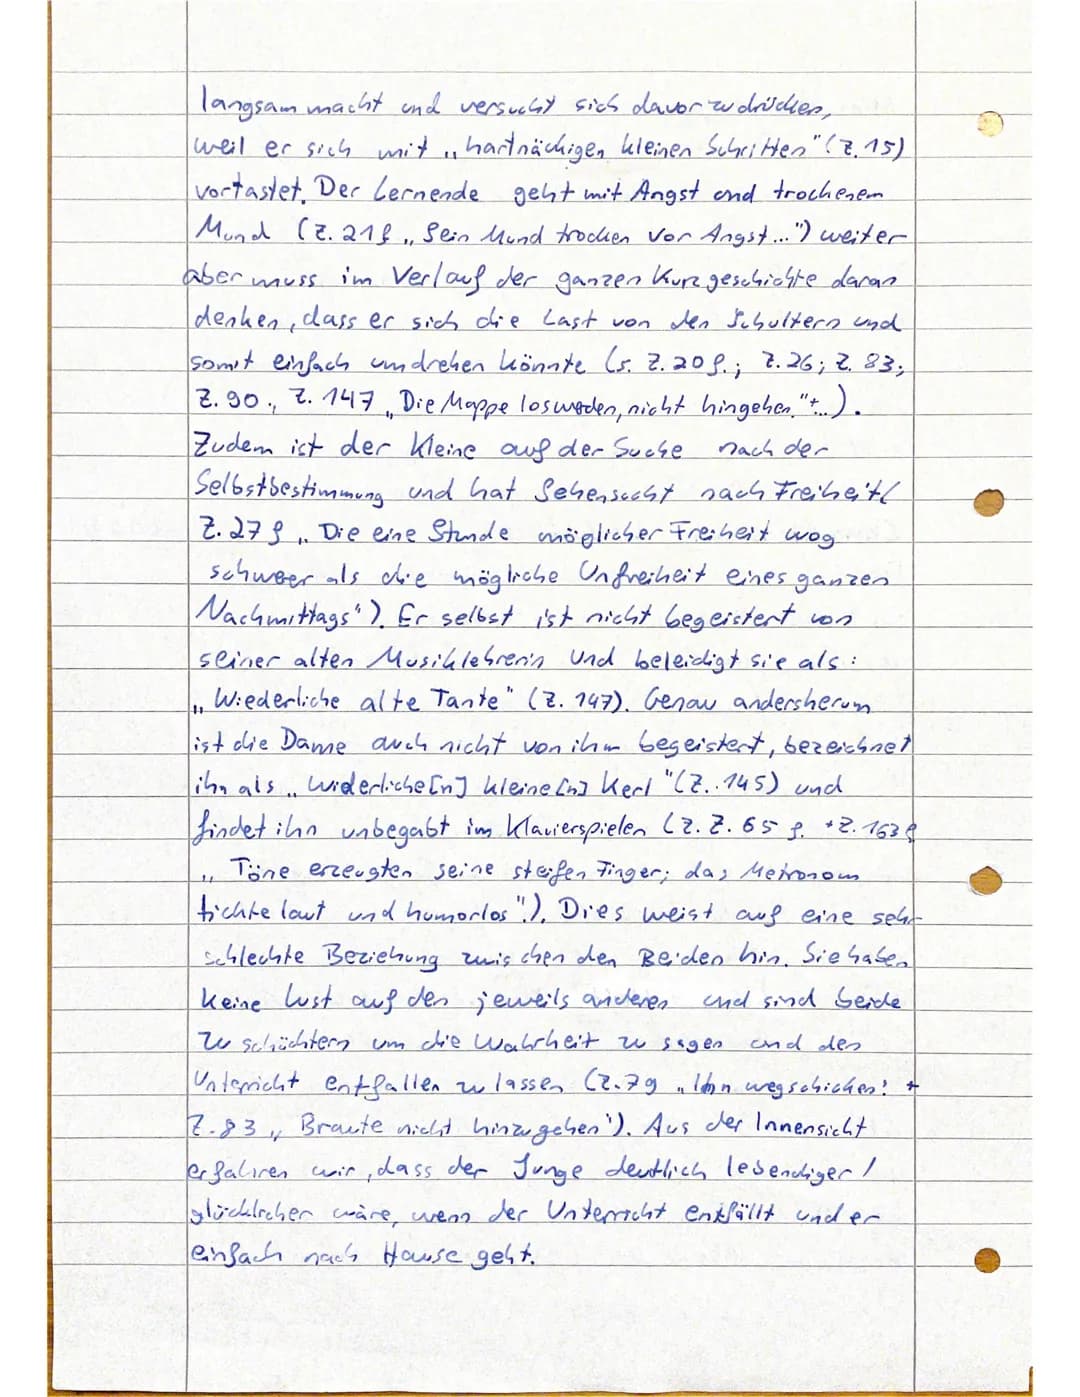 langsam macht und versucht sich davor zu drücken,
weil er sich mit „hartnäckigen kleinen Schritten" (Z. 15)
vortastet. Der Lernende geht mit Angst und trockenem
Mund (Z. 21f „Sein Mund trocken vor Angst...") weiter
aber muss im Verlauf der ganzen Kurzgeschichte daran
denken, dass er sich die Last von den Schultern und
somit einfach umdrehen könnte (s. Z. 20f.; Z. 26; Z. 83;
Z. 90., Z. 147 „Die Mappe loswerden, nicht hingehen."+...).
Zudem ist der Kleine auf der Suche nach der
Selbstbestimmung und hat Sehensucht nach Freiheit(
Z. 27f „Die eine Stunde möglicher Freiheit wog
schwerer als die mögliche Unfreiheit eines ganzen
Nachmittags"). Er selbst ist nicht begeistert von
seiner alten Musiklehrerin und beleidigt sie als:
„Wiederliche alte Tante" (Z. 147). Genau andersherum
ist die Dame auch nicht von ihm begeistert, bezeichnet
ihn als „widerliche[n] kleine[n] Kerl" (Z. 145) und
findet ihn unbegabt im Klavierspielen (z. Z. 65 f. +Z. 163f
„Töne erzeugten seine steifen Finger; das Metronom
tickte laut und humorlos".). Dies weist auf eine sehr
schlechte Beziehung zwischen den Beiden hin. Sie haben
keine Lust auf den jeweils anderen und sind beide
zu schüchtern um die Wahrheit zu sagen und den
Unterricht entfallen zu lassen (Z. 79 „Ihn wegschicken! +
Z. 83 „Braute nicht hinzugehen"). Aus der Innensicht
erfahren wir, dass der Junge deutlich lebendiger/
glücklicher wäre, wenn der Unterricht entfällt und er
einfach nach Hause geht.